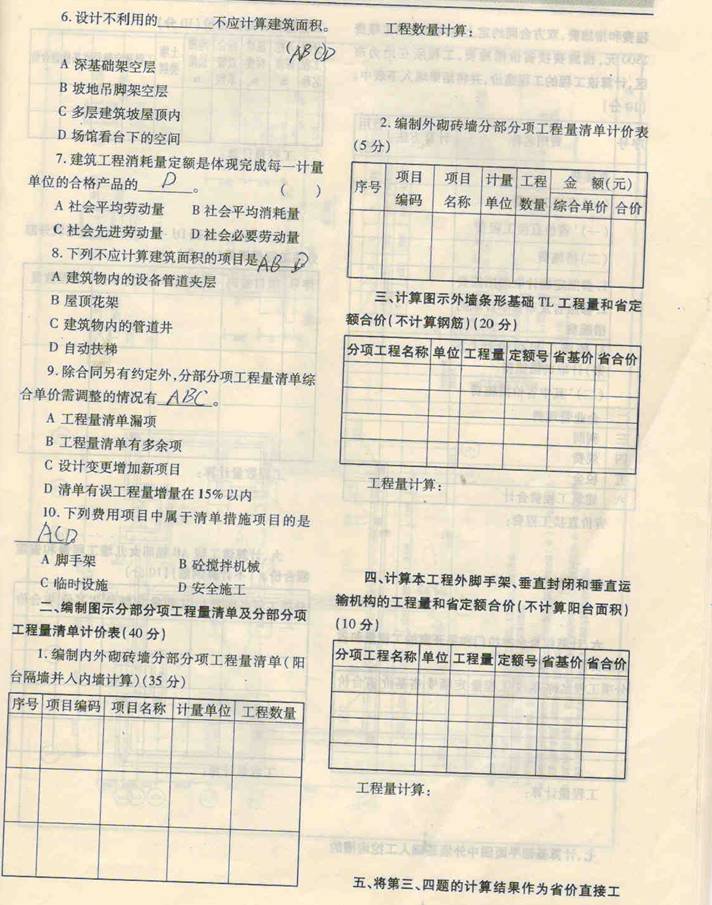 6.设计不利用的______不应计算建筑面积。
(ABCD
A 深基础架空层
B 坡地吊脚架空层
C 多层建筑坡屋顶内
D 场馆看台下的空间
7.建筑工程消耗量定额是体现完成每一计量
单位的合格产品的 D 。 ( )
A 社会平均劳动量 B 社会平均消耗量
C 社会先进劳动量 D 社会必要劳动量
8.下列不应计算建筑面积的项目是 AB D
A 建筑物内的设备管道夹层
B 屋顶花架
C 建筑物内的管道井
D 自动扶梯
9.除合同另有约定外,分部分项工程量清单综
合单价需调整的情况有 ABC 。
A 工程量清单漏项
B 工程量清单有多余项
C 设计变更增加新项目
D 清单有误工程量增量在15%以内
10.下列费用项目中属于清单措施项目的是
ACD。
A 脚手架 B 砼搅拌机械
C 临时设施 D 安全施工
二、编制图示分部分项工程量清单及分部分项
工程量清单计价表(40分)
1.编制内外砌砖墙分部分项工程量清单(阳
台隔墙并人内墙计算)(35分)
序号 项目编码 项目名称 计量单位 工程数量
工程数量计算:
2.编制外砌砖墙分部分项工程量清单计价表
(5分)
序号 项目编码 项目名称 计量单位 工程数量 金 额(元)
综合单价 合价
三、计算图示外墙条形基础 TL 工程量和省定
额合价(不计算钢筋)(20分)
分项工程名称 单位 工程量 定额号 省基价 省合价
工程量计算:
四、计算本工程外脚手架、垂直封闭和垂直运
输机构的工程量和省定额合价(不计算阳台面积)
(10分)
分项工程名称 单位 工程量 定额号 省基价 省合价
工程量计算:
五、将第三、四题的计算结果作为省价直接工